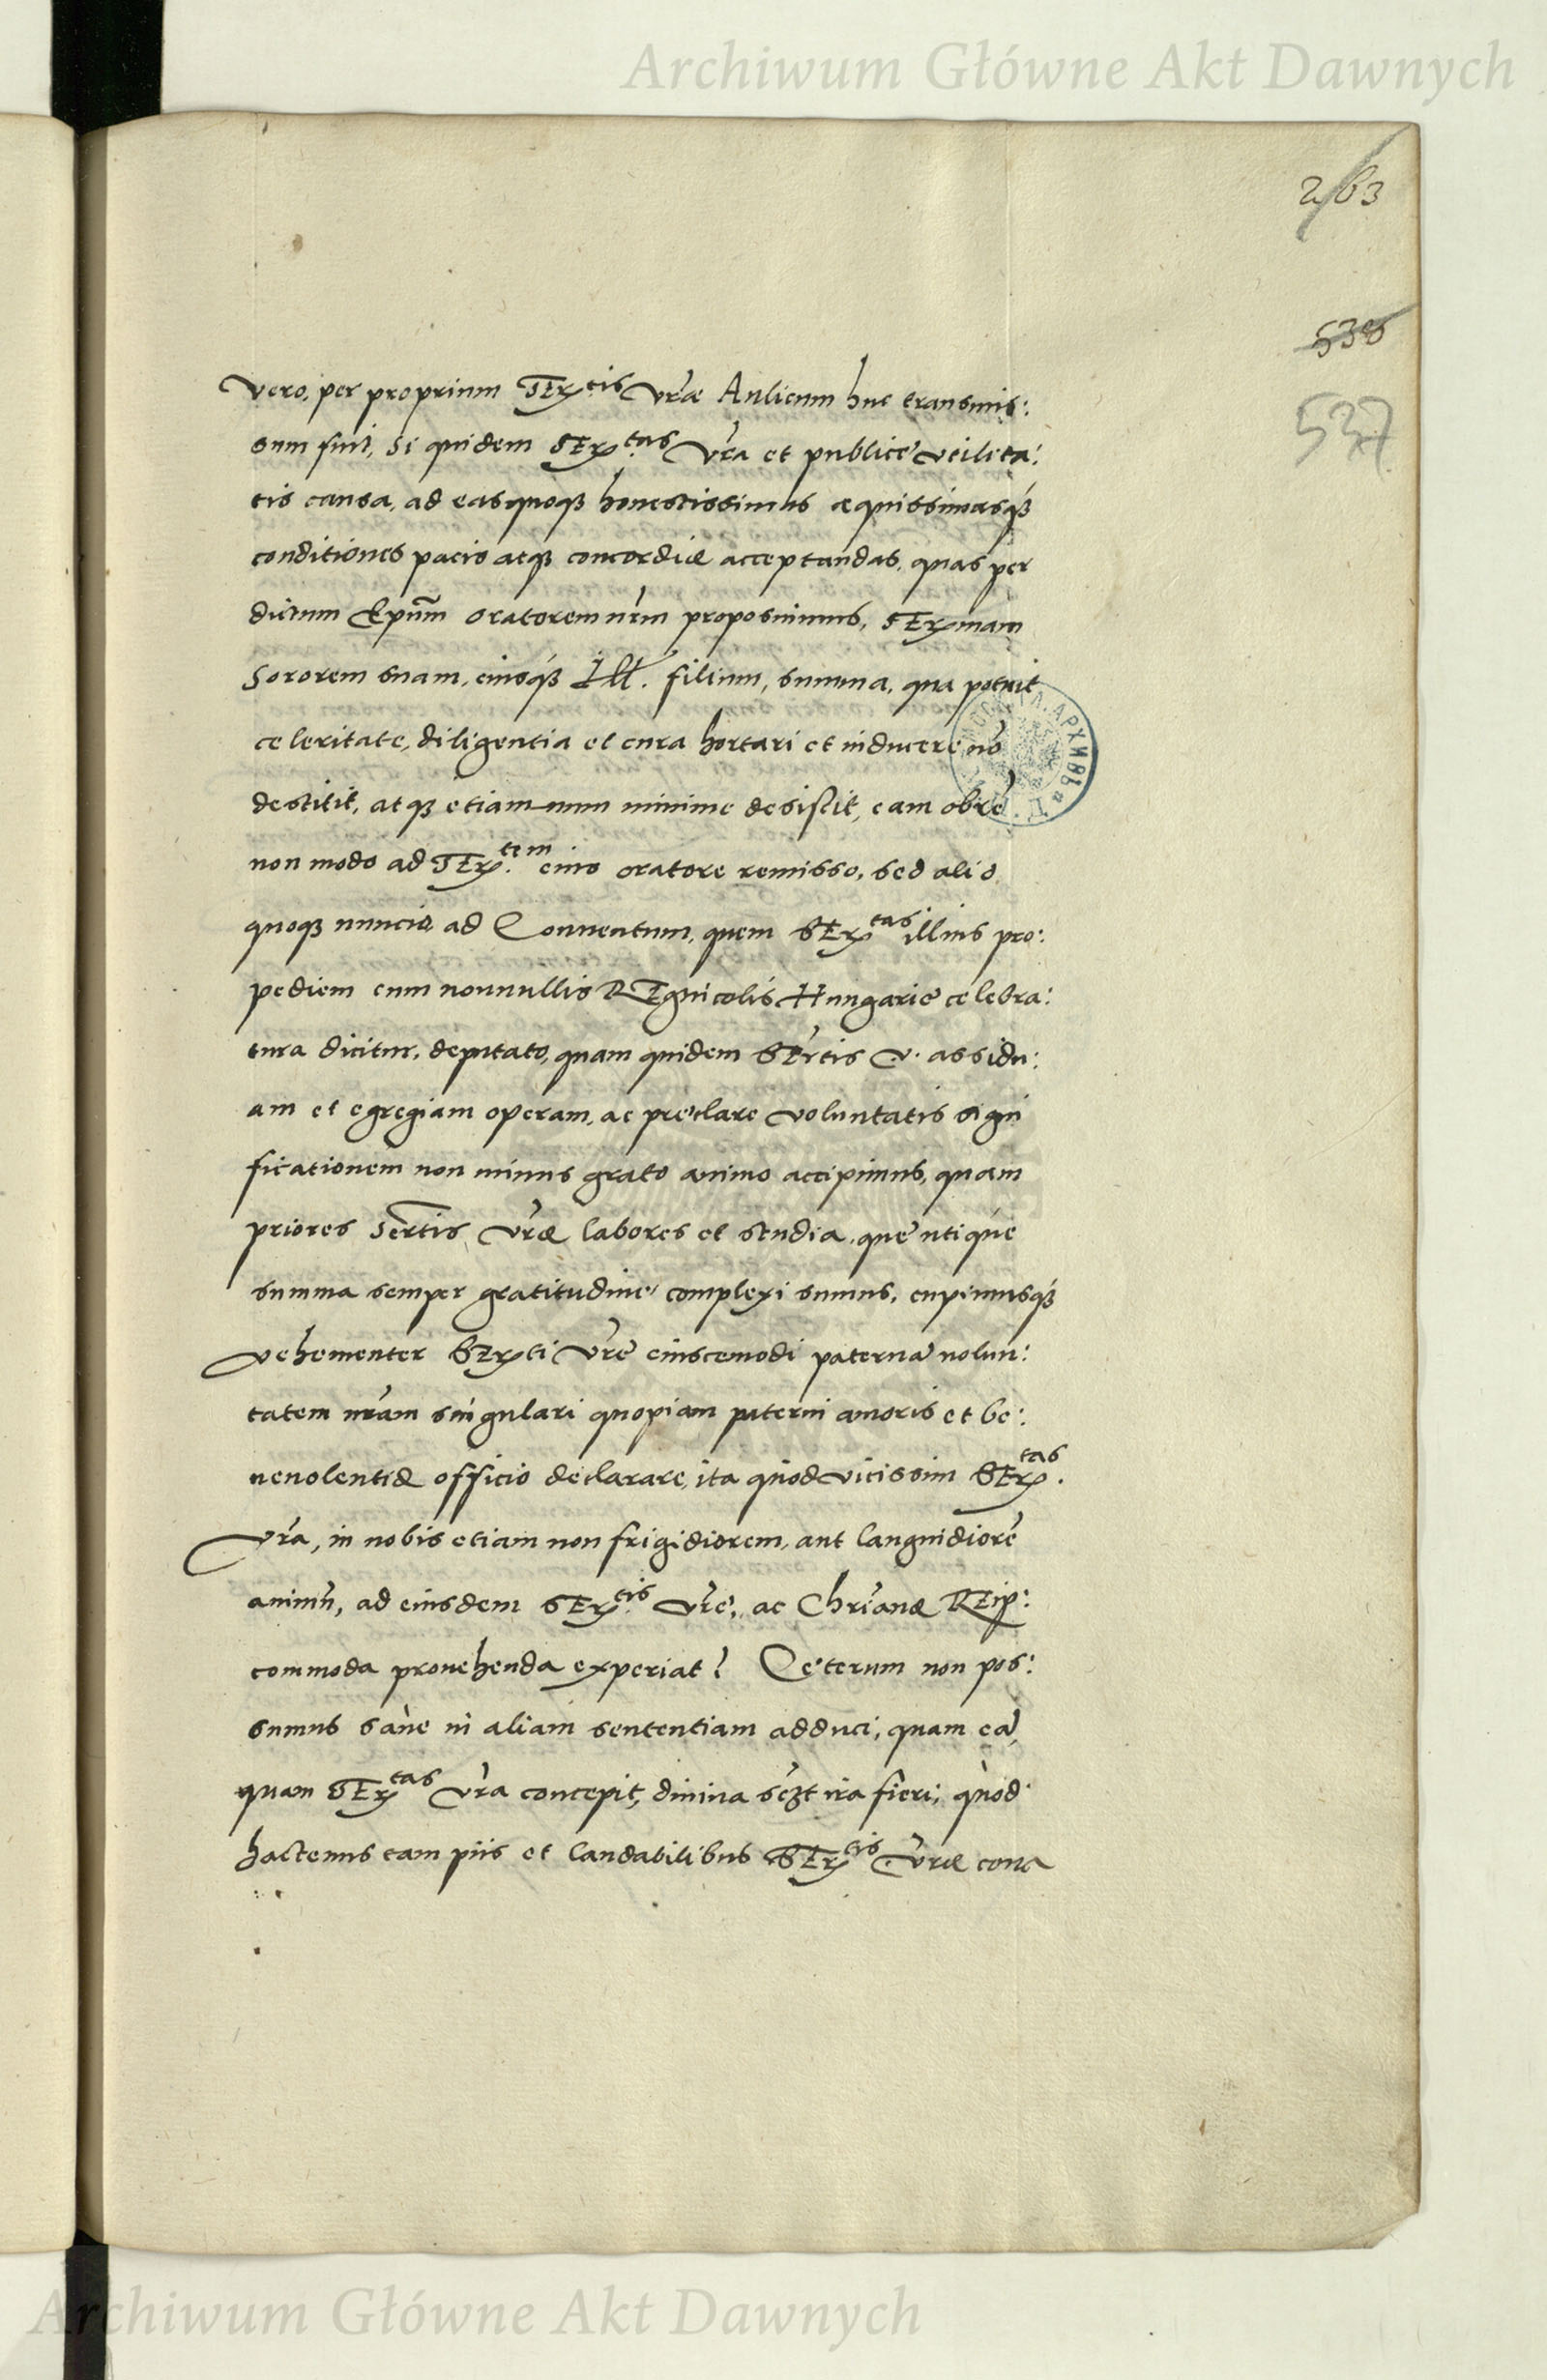 Archiwum Główne Akt Dawnych
263
538
537
vero, per proprium SEr.tis Vræ Aulicum huc transmis:
sum fuit, Si quidem SEr.tas Vra et publicé utilita:
tis causa, ad eas quoqꝫ honestissimas æquissimasqꝫ
conditiones pacis atqꝫ concordiæ acceptandas, quas per
dictum Epũm oratorem nrm proposuimus, SErmam
Sororem suam, eiusqꝫ Ill. filium, summa, qua potuit
celeritate, diligentia et cura hortari et inducere nõ
destitit, atqꝫ etiam num minime desistit, eam ob rẽ
non modo ad SEr.tem eius oratore remisso, sed alio
quoqꝫ nuncio ad Conuentum, quem SEr.tas illius pro:
pediem cum nonnullis REgnicolis Hungarie celebra:
tura dicitur, deputato, quam quidem SErtis V. assidu:
am et egregiam operam, ac preclare voluntatis signi
ficationem non minus grato animo accipimus, quam
priores Sertis Vræ labores et studia, que utique
summa semper gratitudine complexi sumus, cupimusqꝫ
vehementer SErti Vre eiuscemodi paternã uolun:
tatem nram singulari quopiam paterni amoris et be:
neuolentiæ officio declarare, ita quod vicissim SEr.tas
Vra, in nobis etiam non frigidiorem, aut languidiorẽ
animũ, ad eiusdem SEr.tis Vre, ac Chrianæ REip:
commoda prouehenda experiat? Ceterum non pos:
sumus sane in aliam sententiam adduci, quam eã,
quam SEr.tas Vra concepit, diuina sczt ira fieri, quod
hactenus tam piis et laudabilibus SEr.tis Vræ cona
Archiwum Główne Akt Dawnych